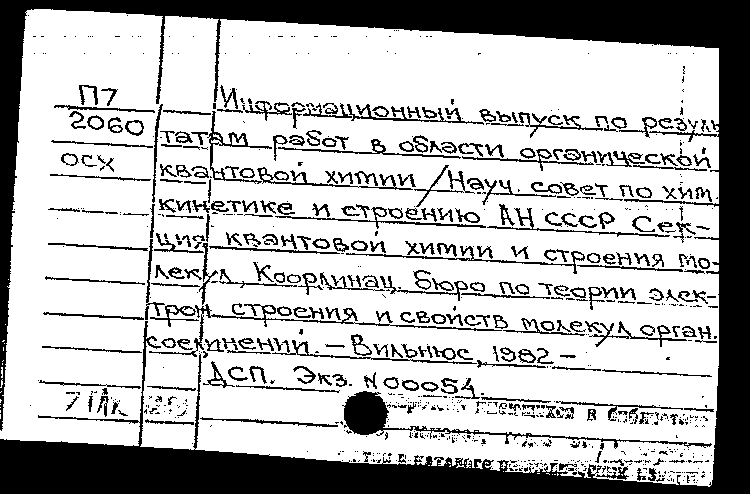 П7
2060
осх
Информационный выпуск по резуль
татам работ в области органической
квантовой химии / Науч. совет по хим.
кинетике и строению АН СССР, Сек-
ция квантовой химии и строения мо-
лекул, Координац. бюро по теории элек-
трон. строения и свойств молекул орган.
соединений. – Вильнюс, 1982 –
ДСП. Экз. N 00054.
в библиотеке